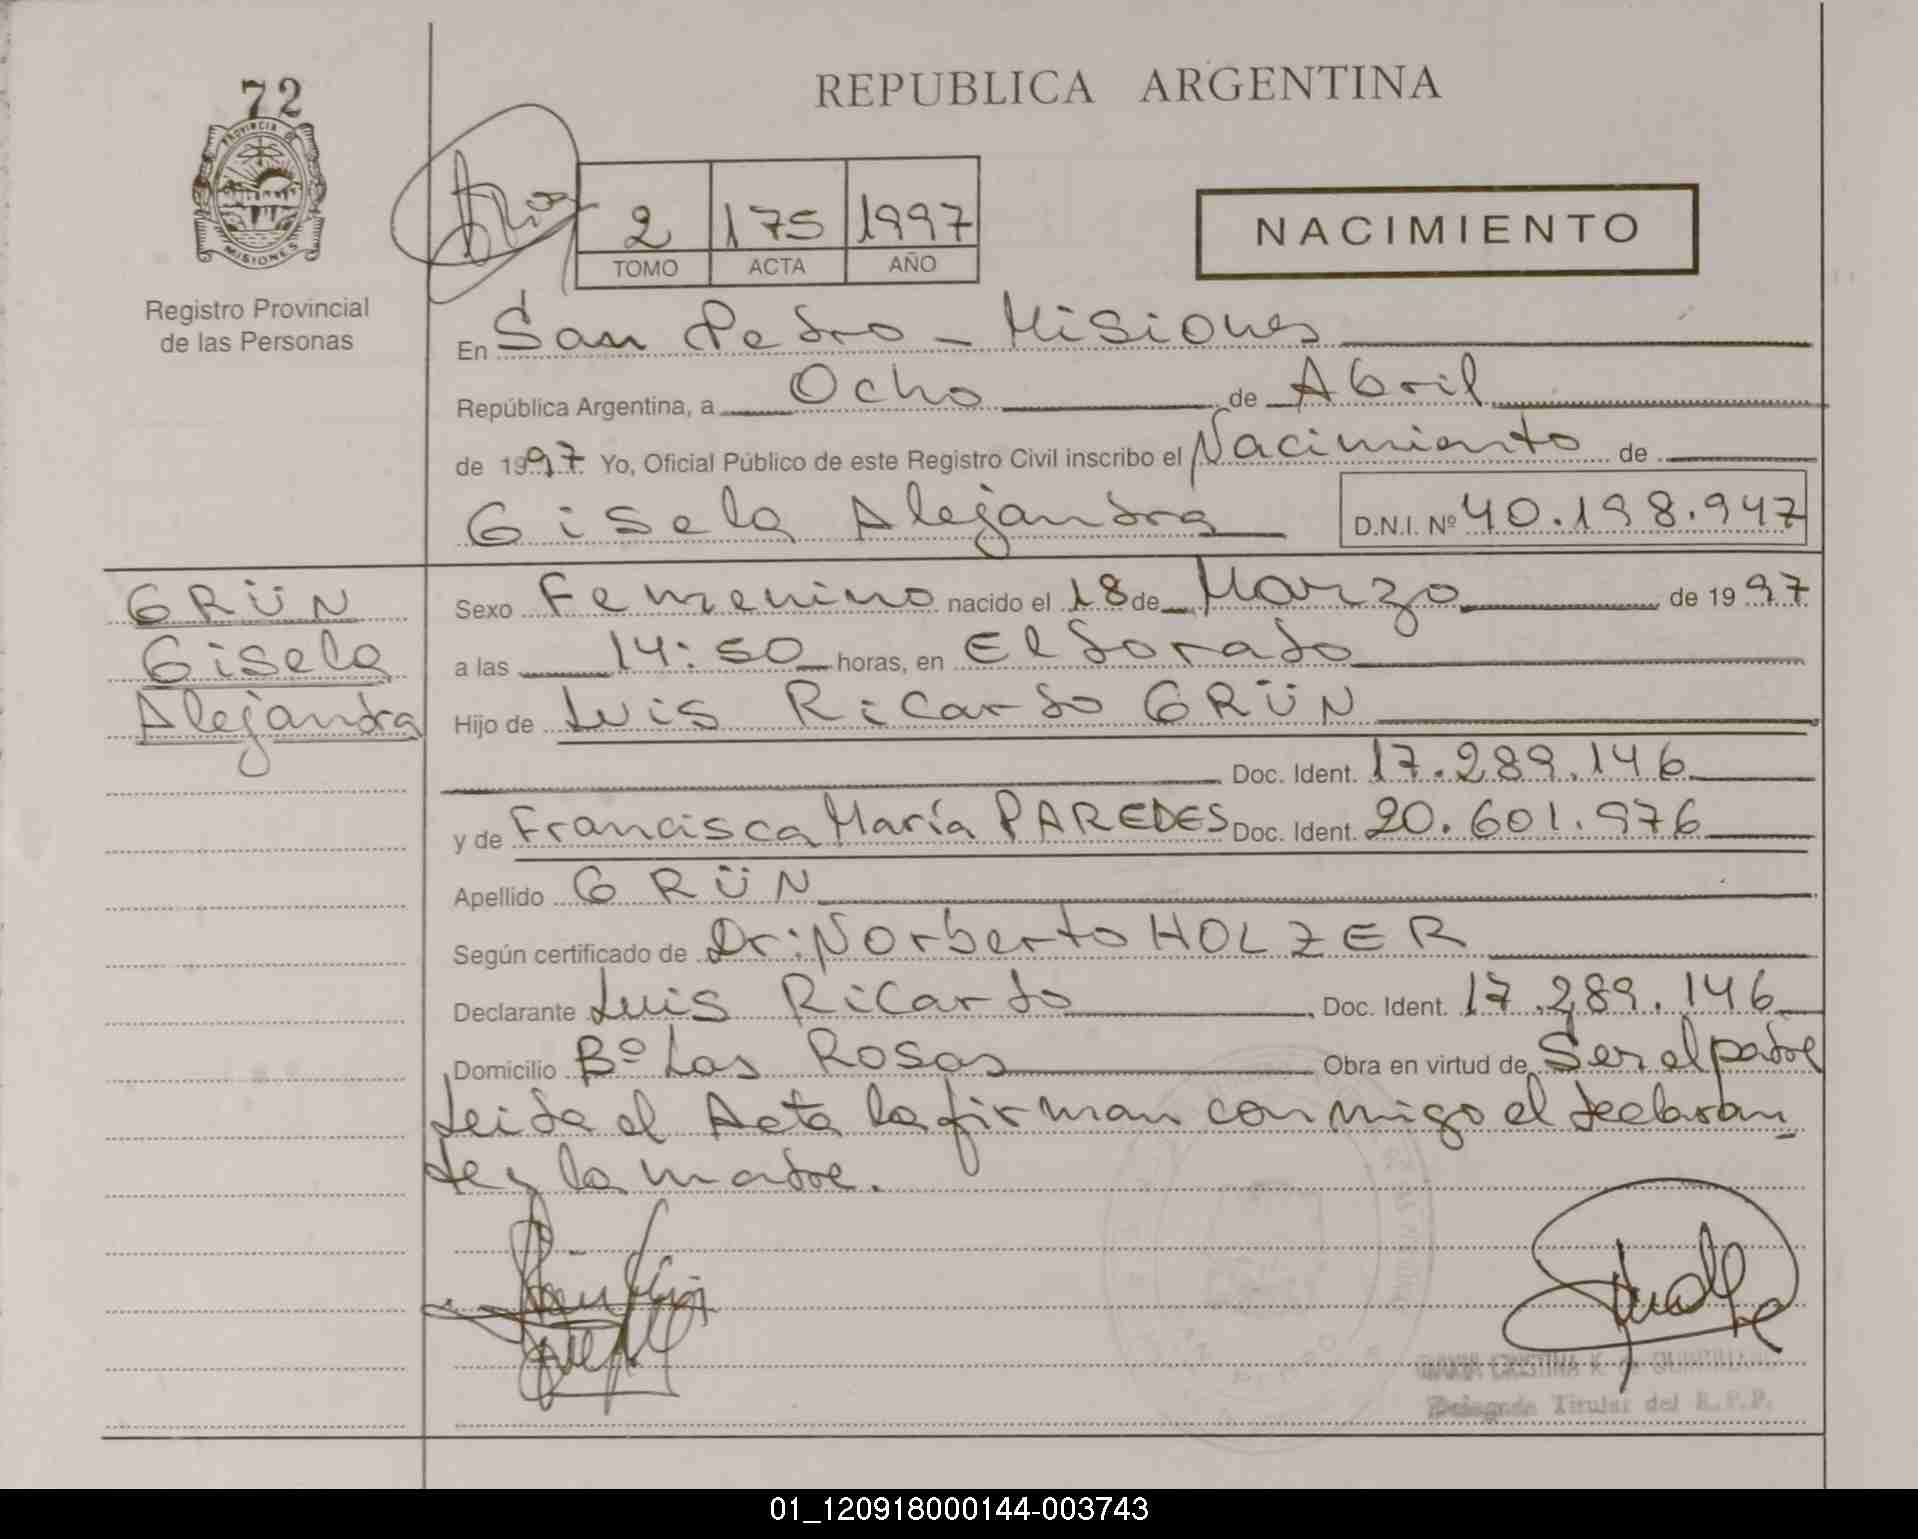 72
REPUBLICA ARGENTINA
PROVINCIA DE
MISIONES
Registro Provincial
de las Personas
2 175 1997
TOMO ACTA AÑO
NACIMIENTO
En San Pedro - Misiones
República Argentina, a Ocho de Abril
de 1997. Yo, Oficial Público de este Registro Civil inscribo el Nacimiento de
Gisela Alejandra D.N.I. Nº 40.198.947
GRÜN
Gisela
Alejandra
Sexo Femenino nacido el 18 de Marzo de 1997
a las 14:50 horas, en Eldorado
Hijo de Luis Ricardo GRÜN
Doc. Ident. 17.289.146
y de Francisca María PAREDES Doc. Ident. 20.601.976
Apellido GRÜN
Según certificado de Dr: Norberto HOLZER
Declarante Luis Ricardo Doc. Ident. 17.289.146
Domicilio Bº Las Rosas Obra en virtud de Ser el padre
Leida el Acta la firman conmigo el declaran
te y la madre.
MARIA CRISTINA K. de
Delegada Titular del R.P.P.
01_120918000144-003743